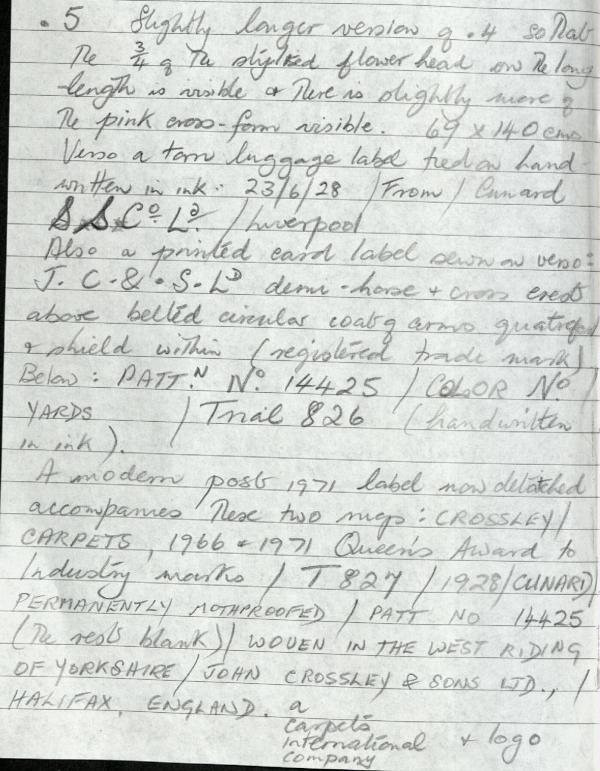 .5 Slightly longer version of .4 so that
the 3/4 of the stylised flower head on the long
length is visible & there is slightly more of
the pink cross-form visible. 69 x 140 cms
Verso a torn luggage label tied on hand-
written in ink: 23/6/28 / From / Cunard
S.S. Co. Ld. / Liverpool
Also a printed card label sewn on verso:
J. C. & . S. Ld demi-horse & cross crests
above belted circular coat of arms quatrefoil
& shield within (registered trade mark)
Below: PATT.N No. 14425 / COLOR No. /
YARDS / Trial 826 (handwritten
in ink).
A modern post 1971 label now detached
accompanies these two rugs: CROSSLEY /
CARPETS, 1966 & 1971 Queen's Award to
Industry marks / T 827 / 1928 / CUNARD /
PERMANENTLY MOTHPROOFED / PATT NO 14425
(the rest blank) / WOVEN IN THE WEST RIDING
OF YORKSHIRE / JOHN CROSSLEY & SONS LTD., /
HALIFAX, ENGLAND. a
carpets
international + logo
company